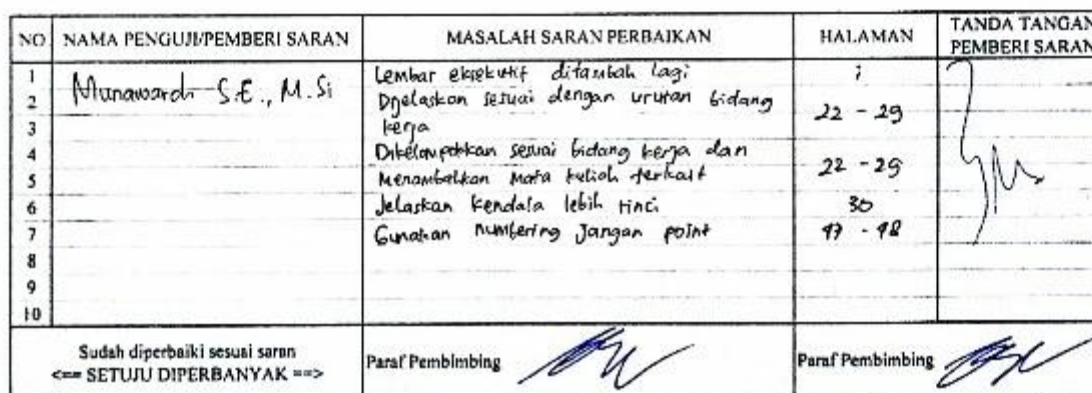 NO NAMA PENGUJI/PEMBERI SARAN MASALAH SARAN PERBAIKAN HALAMAN TANDA TANGAN PEMBERI SARAN
1 Munawardi S.E., M.Si Lembar eksekutif ditambah lagi i
2 Dijelaskan sesuai dengan urutan bidang 22 - 29
3 kerja
4 Dikelompokkan sesuai bidang kerja dan 22 - 29
5 Menambahkan Mata kuliah terkait
6 Jelaskan kendala lebih rinci 30
7 Gunakan numbering Jangan point
8
9
10
Sudah diperbaiki sesuai saran
<== SETUJU DIPERBANYAK ==>
Paraf Pembimbing
Paraf Pembimbing